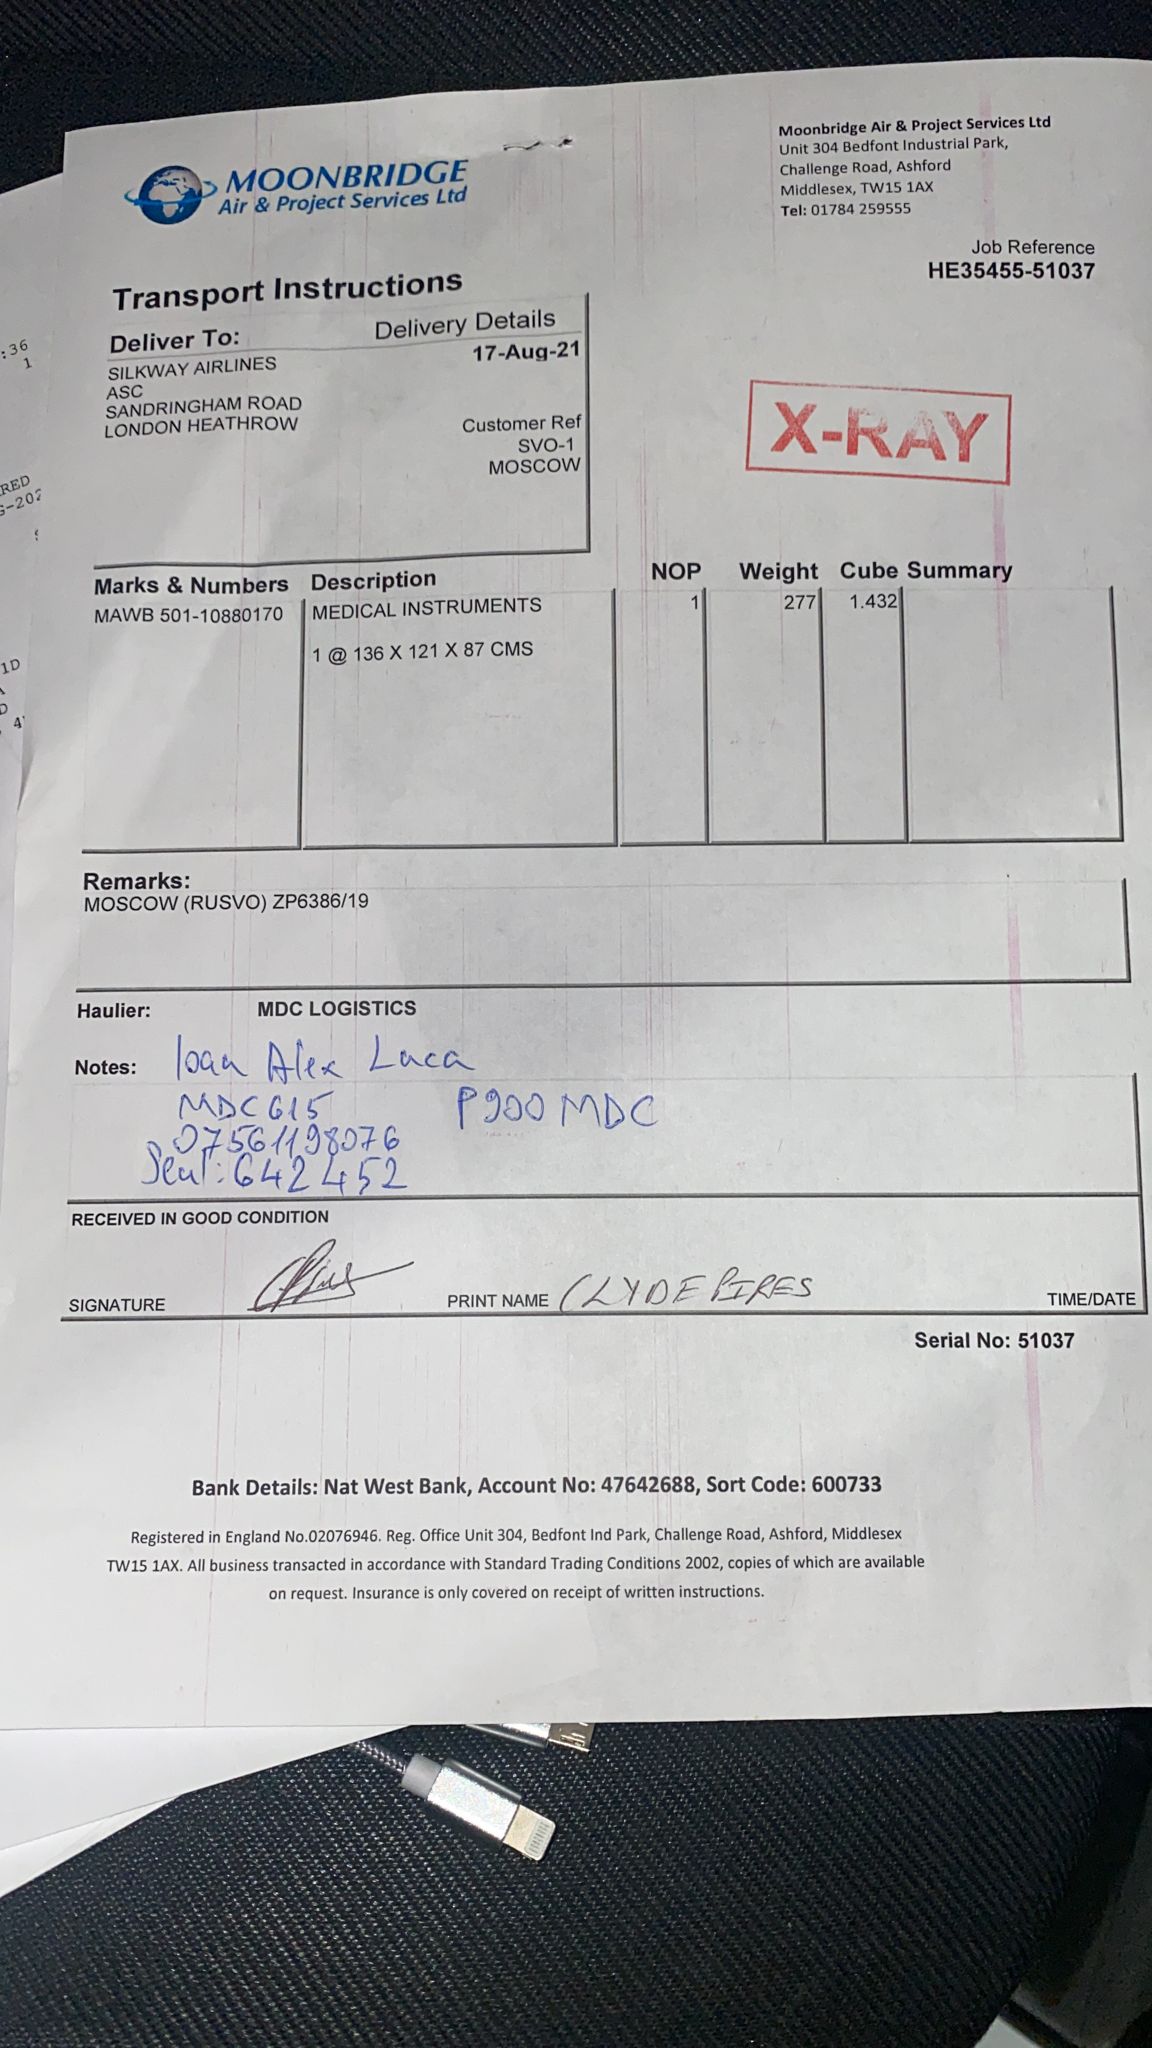 MOONBRIDGE
Air & Project Services Ltd
Moonbridge Air & Project Services Ltd
Unit 304 Bedfont Industrial Park,
Challenge Road, Ashford
Middlesex, TW15 1AX
Tel: 01784 259555
Job Reference
HE35455-51037
Transport Instructions
Deliver To: Delivery Details
SILKWAY AIRLINES 17-Aug-21
ASC
SANDRINGHAM ROAD
LONDON HEATHROW Customer Ref
SVO-1
MOSCOW
X-RAY
Marks & Numbers Description NOP Weight Cube Summary
MAWB 501-10880170 MEDICAL INSTRUMENTS 1 277 1.432
1 @ 136 X 121 X 87 CMS
Remarks:
MOSCOW (RUSVO) ZP6386/19
Haulier: MDC LOGISTICS
Notes: Ioan Alex Luca
MDC615 P900MDC
07561198076
Seal: 642452
RECEIVED IN GOOD CONDITION
SIGNATURE PRINT NAME CLYDE PIRES TIME/DATE
Serial No: 51037
Bank Details: Nat West Bank, Account No: 47642688, Sort Code: 600733
Registered in England No.02076946. Reg. Office Unit 304, Bedfont Ind Park, Challenge Road, Ashford, Middlesex
TW15 1AX. All business transacted in accordance with Standard Trading Conditions 2002, copies of which are available
on request. Insurance is only covered on receipt of written instructions.
:36
1
RED
1D